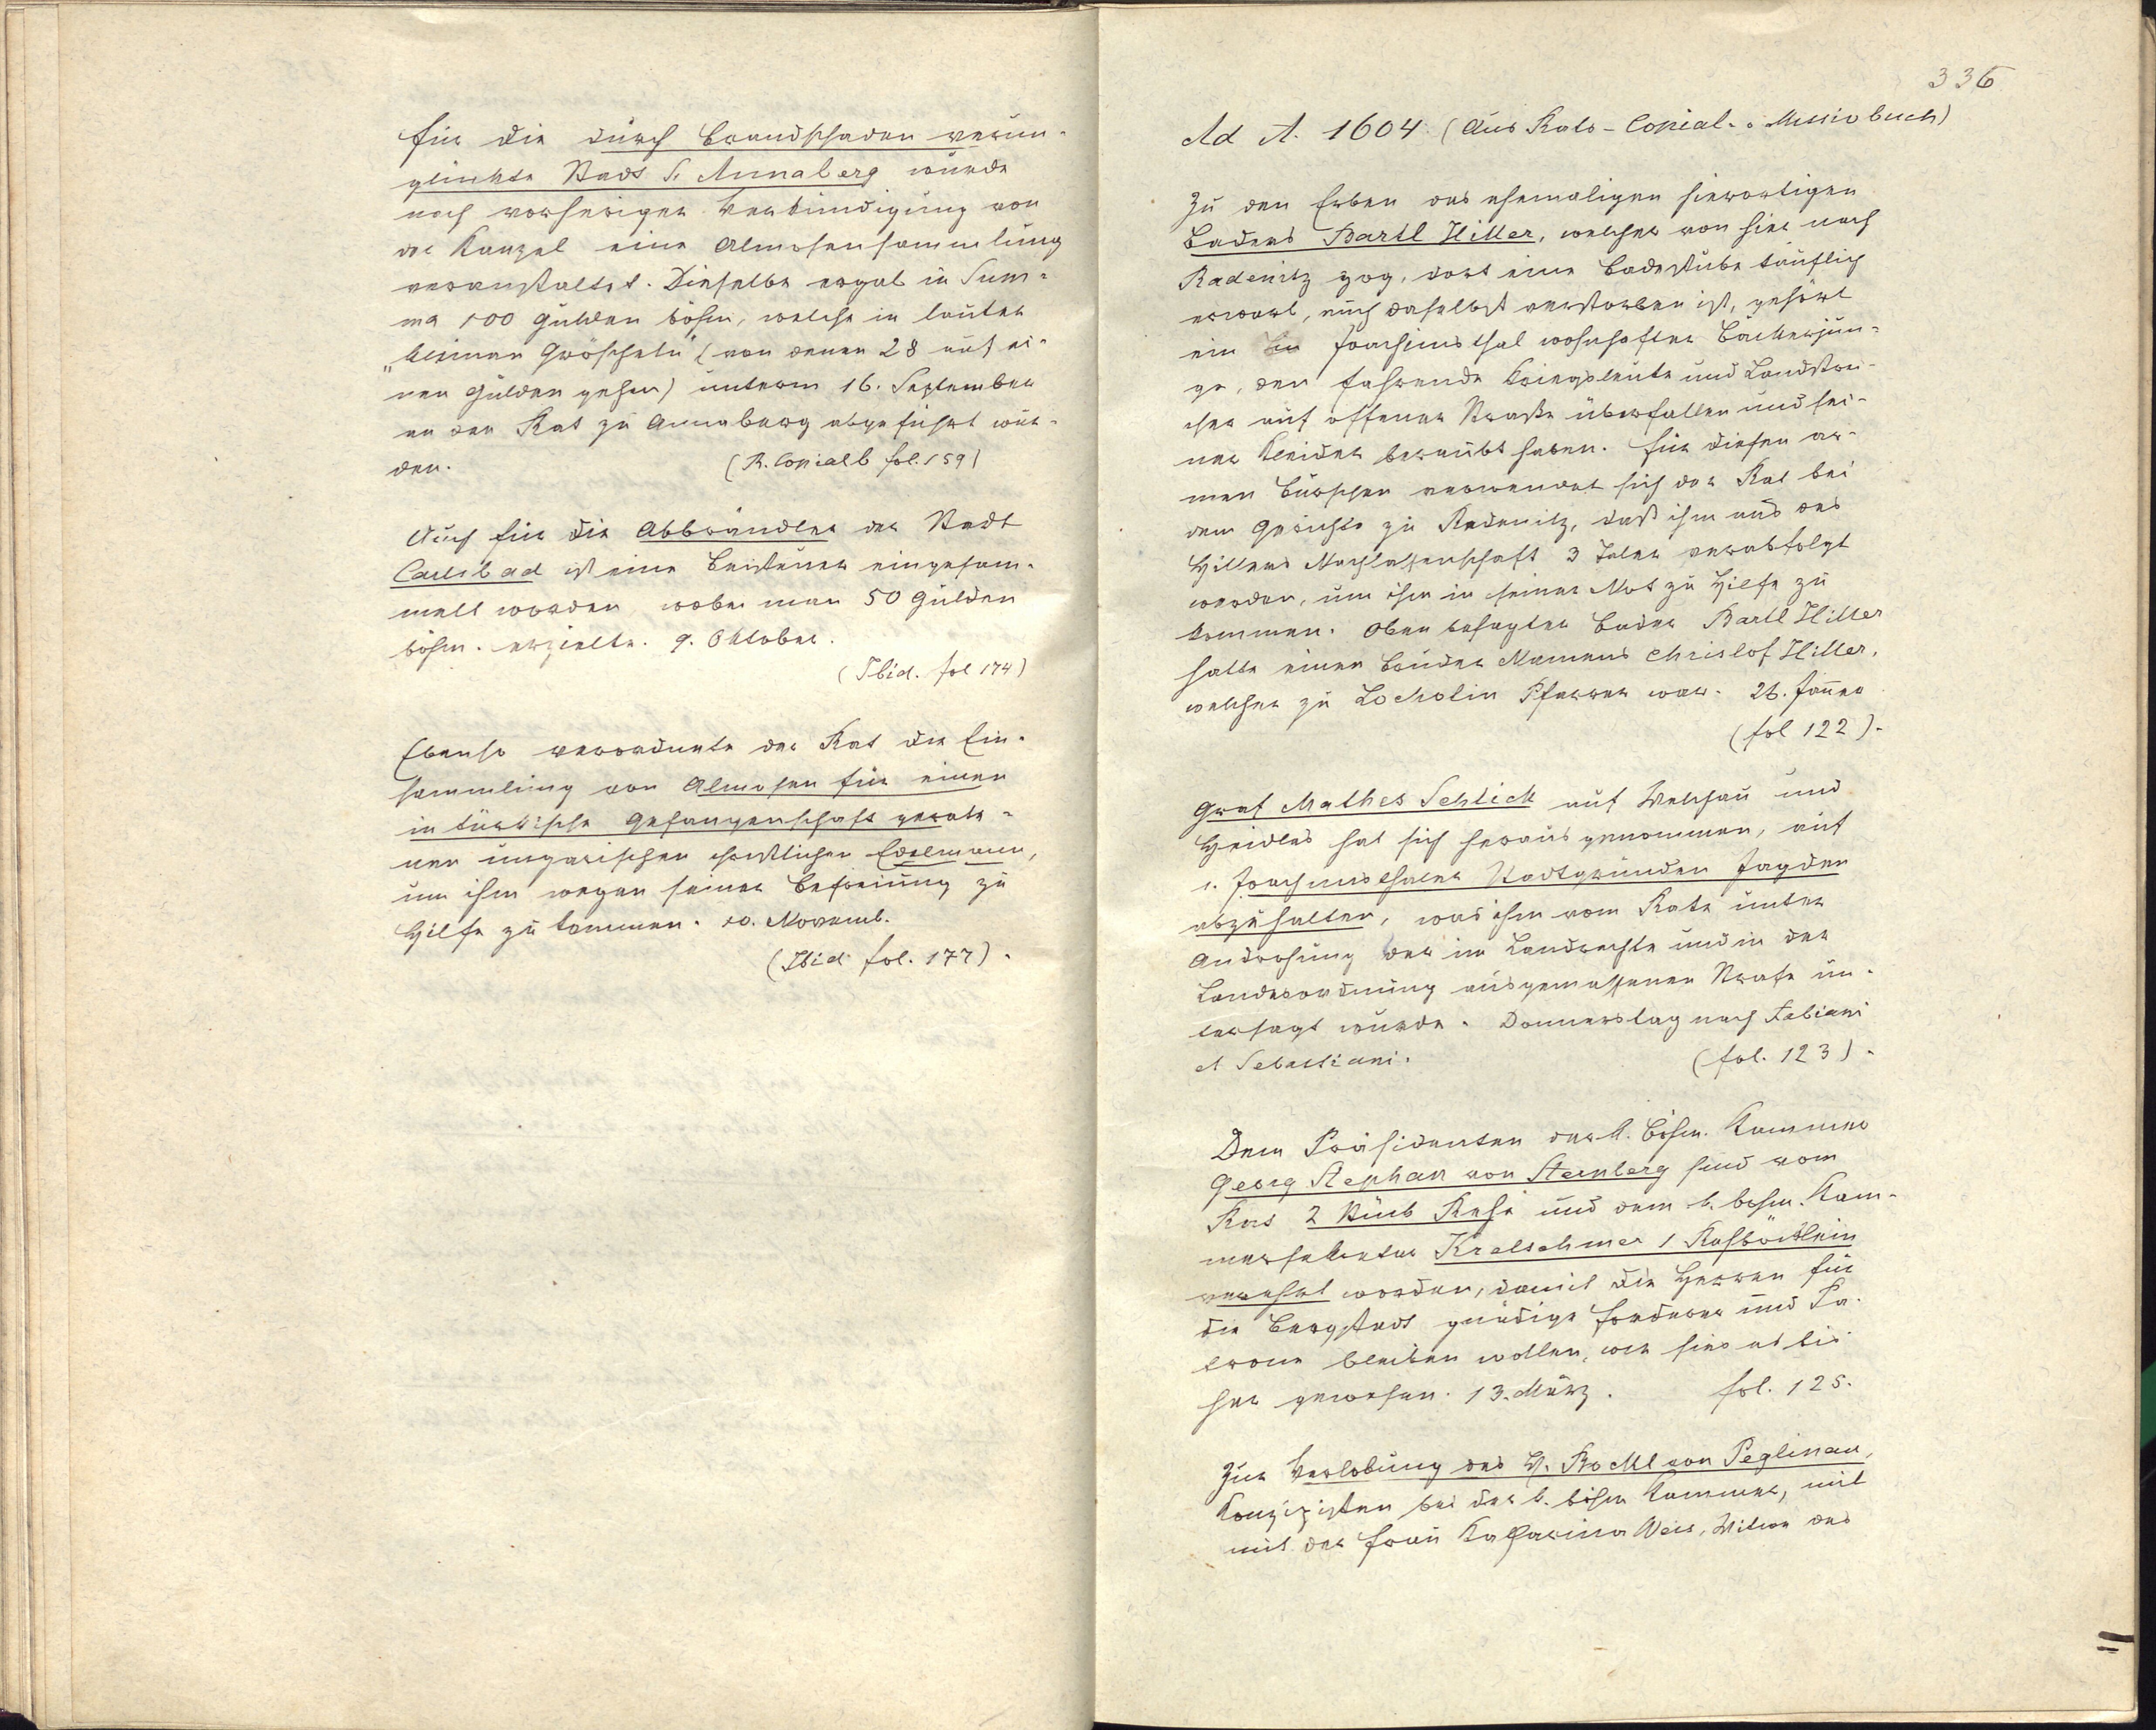 für die durch Brandschaden verun-
glückte Stadt S. Annaberg wurde
nach vorheriger Verkündigung von
der Kanzel eine Almosensammlung
veranstaltet. Dieselbe ergab in Sum-
ma 100 Gulden böhm, welche in lauter
"kleinen Gröscheln" (von denen 28 auf ei-
nen Gulden gehen) unterm 16. September
an den Rat zu Annaberg abgeführt wur-
den. (R. Copialb fol. 159)
Auch für die Abbrändler der Stadt
Carlsbad ist eine Beisteuer eingesam-
melt worden wobei man 50 Gulden
böhm. erzielte. 9. Oktober.
(Ibid. fol 174)
Ebenso verordnete der Rat die Ein-
sammlung von Almosen für einen
in türkische Gefangenschaft gerate-
nen ungarischen christlichen Edelmann,
um ihm wegen seiner Befreiung zu
Hilfe zu kommen. 10. Novemb.
(Ibid fol. 177).
336
Ad A. 1604 (Aus Rats-Copial- Missivbuch)
Zu den Erben des ehemaligen hierortigen
Baders Bartl Hiller, welcher von hier nach
Radenitz zog, dort eine Badestube käuflich
erwarb, auch daselbst verstorben ist, gehört
ein in Joachimsthal wohnhafter Bäckerjun-
ge, den fahrende Kriegsleute und Landstrei-
cher auf offener Straße überfallen und sei-
ner Kleider beraubt haben. Für diesen ar-
men Burschen verwendet sich der Rat bei
dem Gerichte zu Radenitz, daß ihm aus des
Hillers Nachlassenschaft 3 Taler verabfolgt
werden, um ihm in seiner Not zu Hilfe zu
kommen. Oben besagter Bader Bartl Hiller
hatte einen Bruder Namens Christof Hiller,
welcher zu Locholin Pfarrer war. 26. Jänner
(fol 122).
Graf Mathes Schlick auf Welchau und
Heidles hat sich herausgenommen, auf
d. Joachimsthaler Stadtgründen Jagden
abzuhalten, was ihm vom Rate unter
Androhung der im Landrechte und in der
Landesordnung ausgemessenen Strafe un-
tersagt wurde. Donnerstag nach Fabiani
et Sebastiani. (fol. 123).
Dem Präsidenten der k. böhm. Kammer
Georg Stephan von Sternberg sind vom
Rat 2 Stück Rehe und dem k. böhm. Kam-
mersekretär Kretschmer 1 Rehböcklein
verehrt worden, damit die Herren für
die Bergstadt gnädige Forderer und Pa-
trone bleiben wollen, wie sies es bis
her gewesen. 13. März. fol. 125.
Zur Verlobung des H. Rockl von Peglinau,
Konzipisten bei der k. böhm Kammer, mit
mit der Frau Katharina Weis, Witwe des